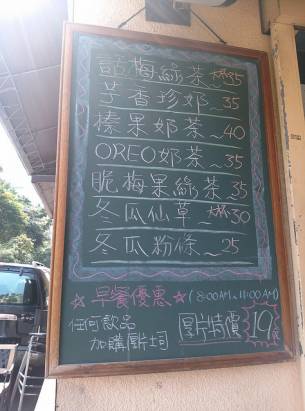 話梅綠茶~大杯35
芋香珍奶~35
榛果奶茶~40
OREO奶茶~35
脆梅果綠茶~35
冬瓜仙草~大杯30
冬瓜粉條~25
☆早餐優惠☆(8:00AM~11:00AM)
任何飲品
加購厚片土司
厚片特價19元